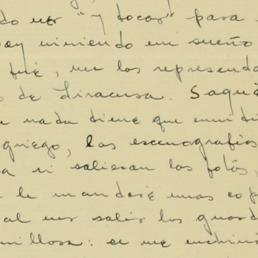 do ver "y tocar" para
oy viviendo un sueño
fué, ver las represent
s de Siracusa. Saqué
e nada tiene que envidi
griego, las escenografías
a si salieran las fotos,
le mandaré unas cop
al ver salir los guard
millosa: se me enchina